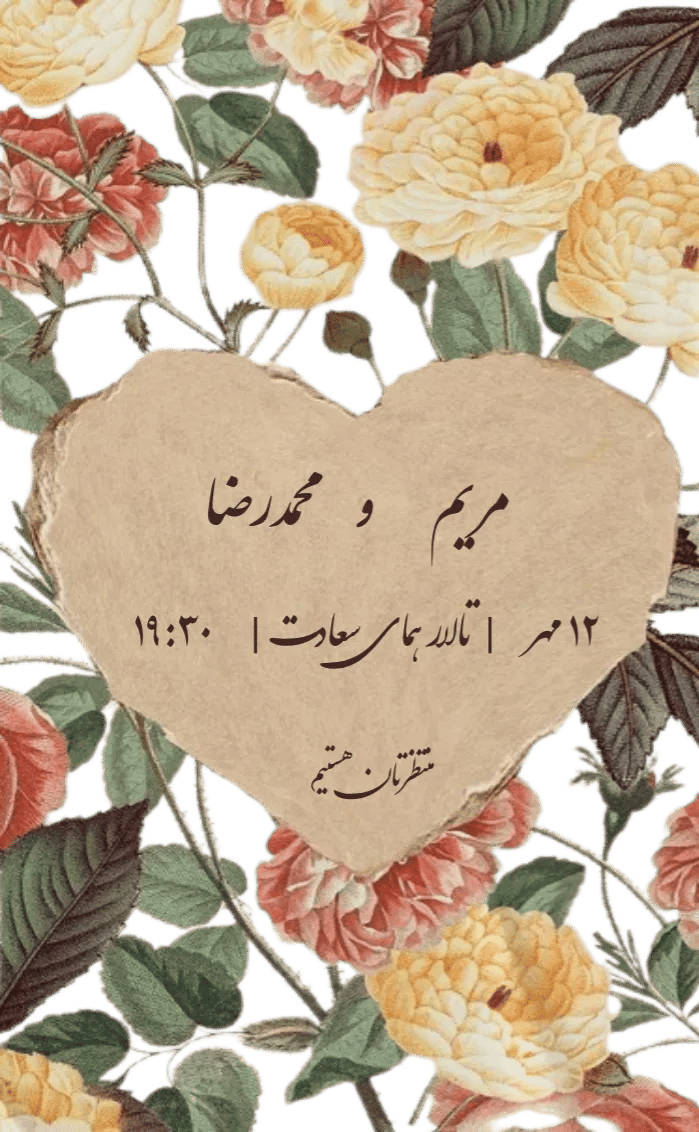 مریم و محمدرضا
۱۲ مهر | تالار همای سعادت | ۱۹:۳۰
منتظرتان هستیم